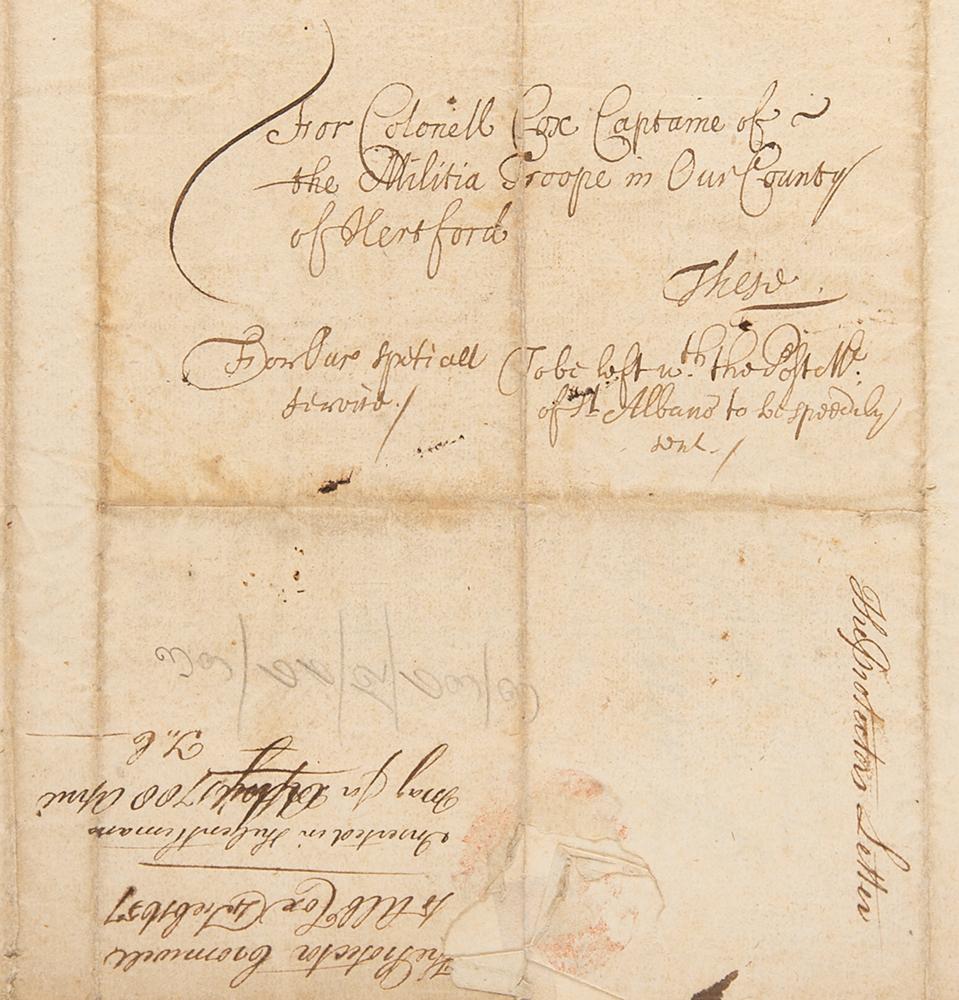 For Colonell Cox Captaine of
the Militia Troope in Our County
of Hertford
These
For Our spetiall
service./
To be left wth. the Post Mr.
of St Albans to be speedily
sent./
The Protectors Letter
The Protector Cromwell
to Alb Cox 4 Feb 1657
Inserted in the Gentlemans
Mag for 1788 April
T..C